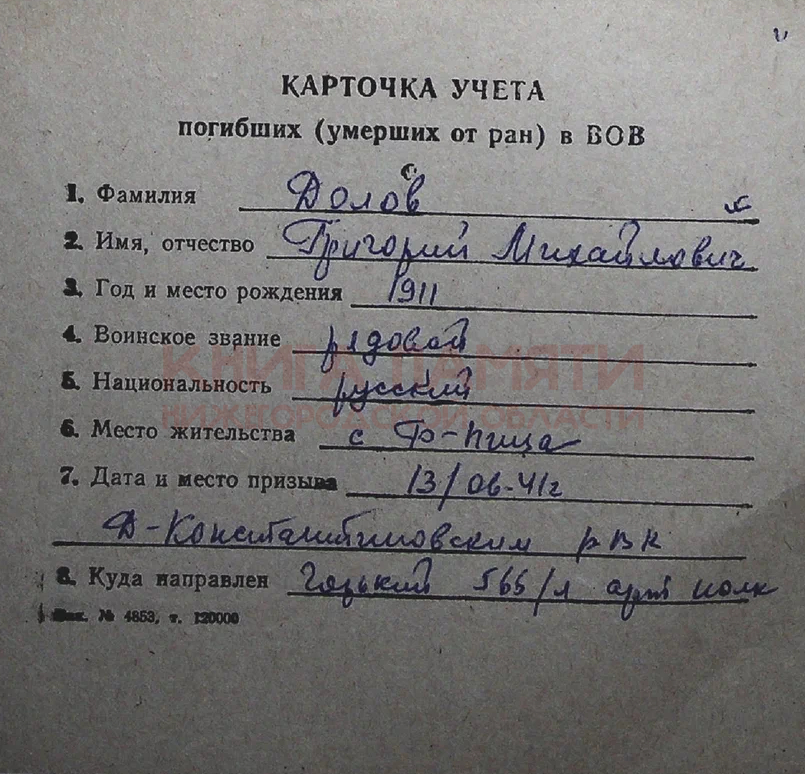 КАРТОЧКА УЧЕТА
погибших (умерших от ран) в ВОВ
1. Фамилия Долов
2. Имя, отчество Григорий Михайлович
3. Год и место рождения 1911
4. Воинское звание рядовой
КНИГА ПАМЯТИ
5. Национальность русский
НИЖЕГОРОДСКОЙ ОБЛАСТИ
6. Место жительства с
7. Дата и место призыва 13/06-41г
Д-Константиновским рвк
8. Куда направлен 565/л арт полк
Зак. № 4853, т. 120000